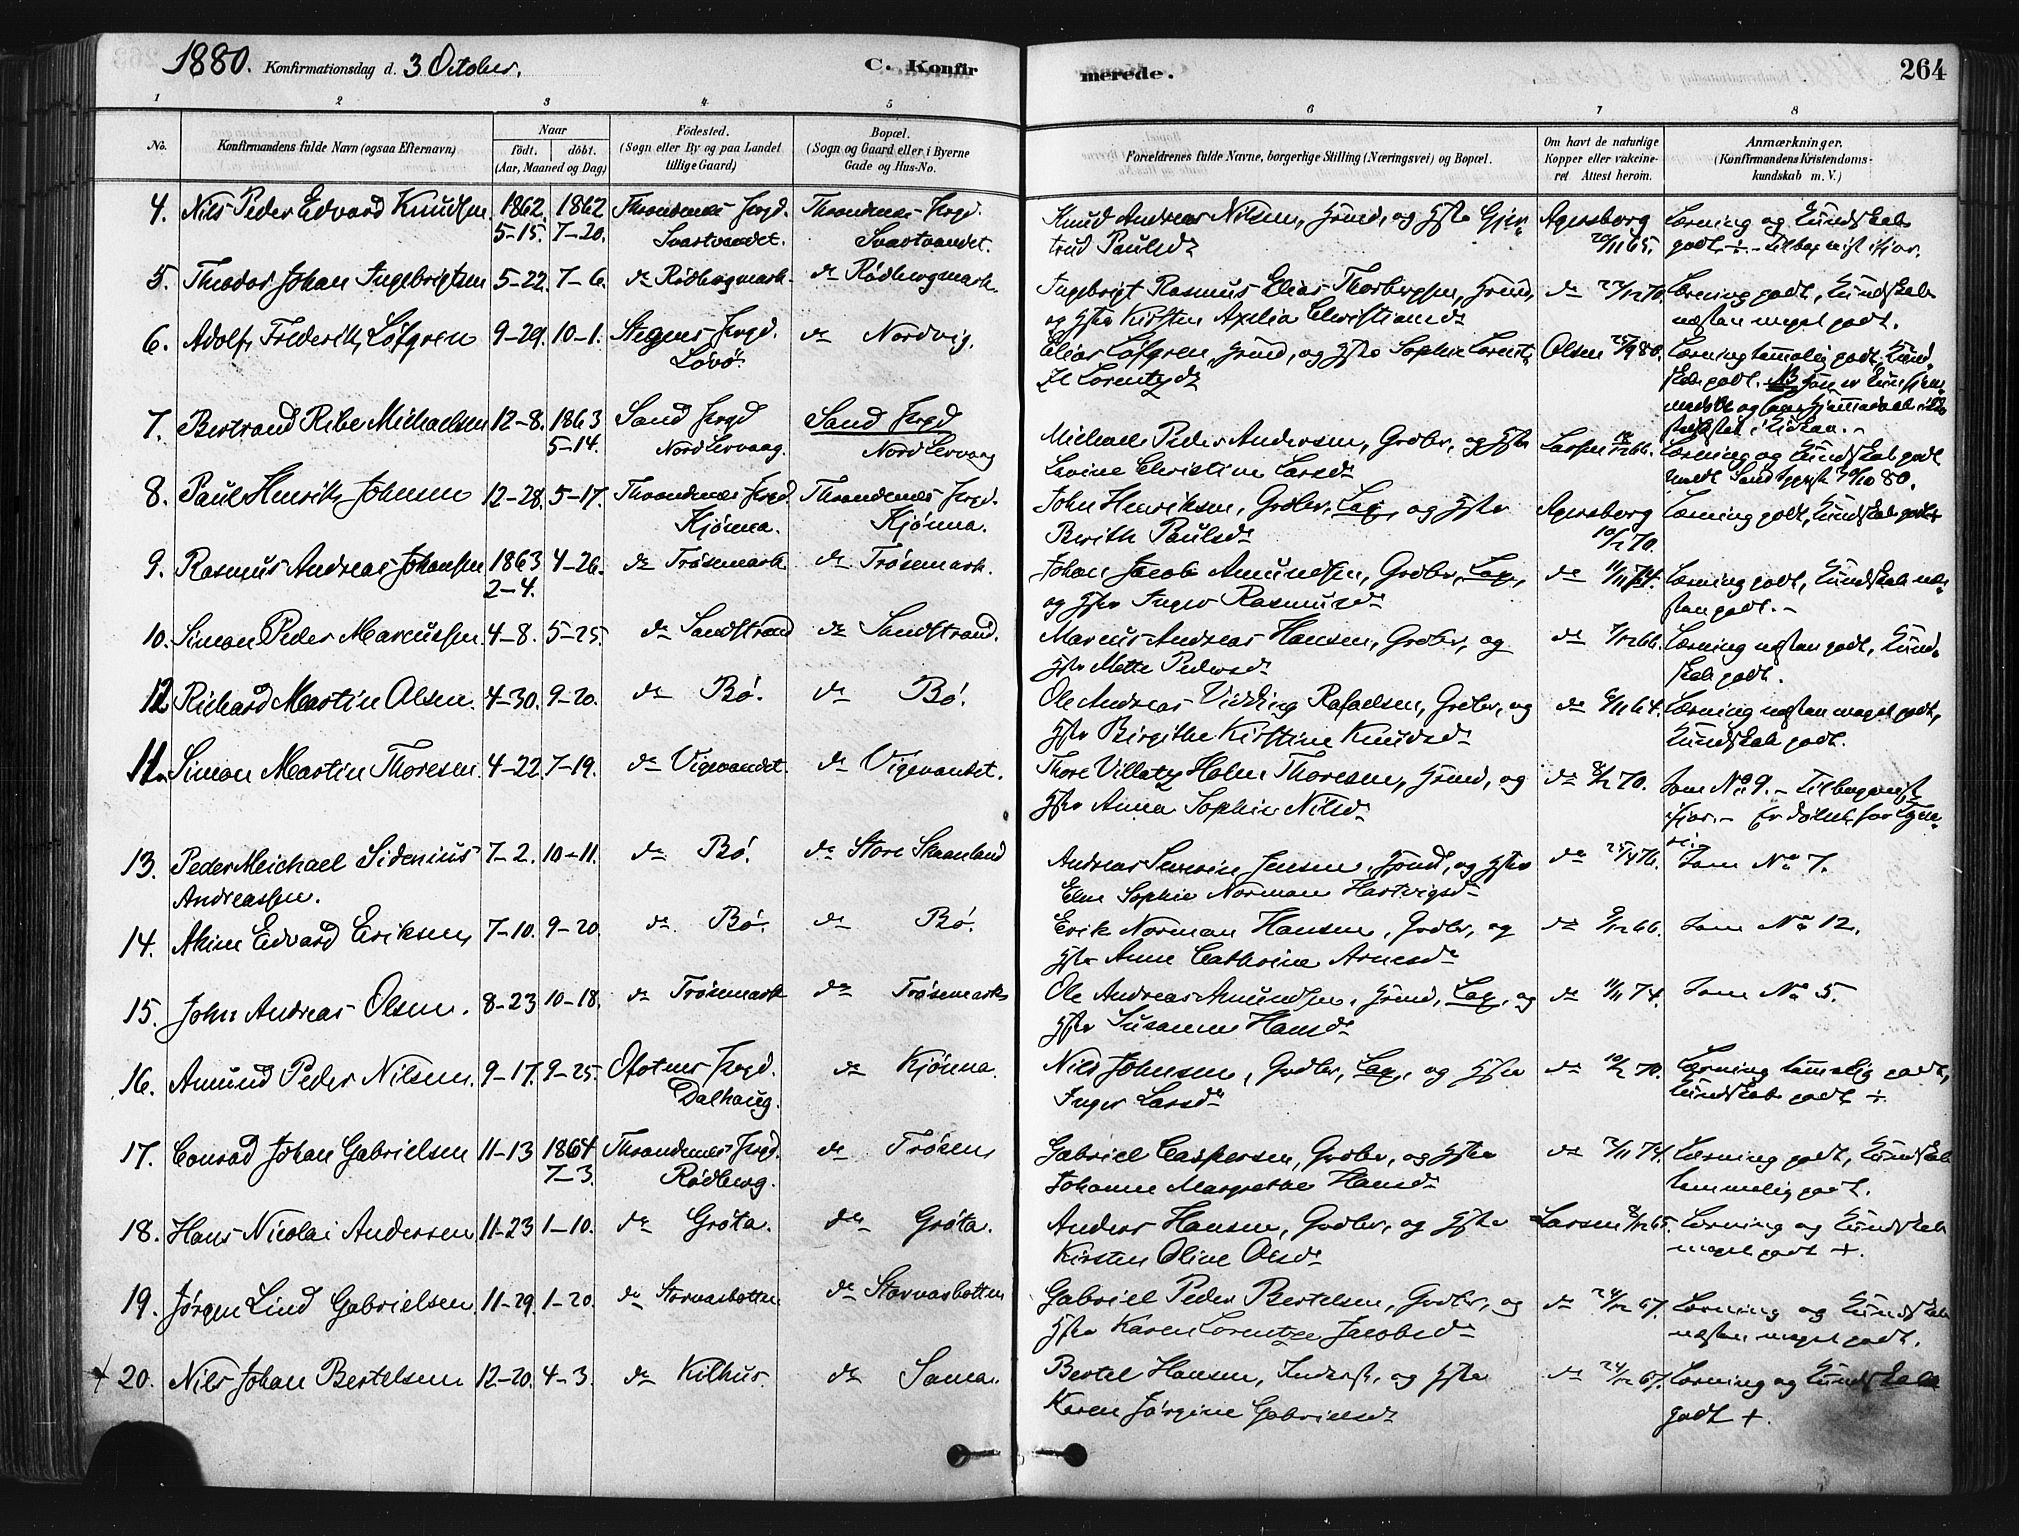 1880. Konfirmationsdag d. 3 October. C. Konfir merede. 264
1 2 3 4 5 6 7 8
No. Konfirmandens fulde Navn (ogsaa Efternavn) Naar födt. döbt. (Aar, Maaned og Dag) Födested. (Sogn eller By og paa Landet tillige Gaard) Bopæl. (Sogn og Gaard eller i Byerne Gade og Hus-No. Forældrenes fulde Navne, borgerlige Stilling (Næringsvei) og Bopæl. Om havt de naturlige Kopper eller vakcineret Attest herom. Anmærkninger. (Konfirmandens Kristendomskundskab m. V.)
4. Nils Peder Edvard Knudsen 1862 5-15. 1862 7-20. Throndenæs Prgd. Svartvandet. Throndenæs Prgd. Svartvandet. Knud Andreas Nilsen, Gmd, og Hstr Gjertrud Paulsdr Agersborg 20/11 65. Læsning og Kundskab godt +
5. Theodor Johan Ingebrigtsen 5-22. 7-6. do Rödbergmark. do Rödbergmark. Ingebrigt Rasmus Elias Thorbergsen, Gmd, og Hstr Kirsten Axelia Christiansdr do 70. Læsning godt, Kundskab næsten meget godt.
6. Adolf Frederik Löfgren 9-29. 10-1. Stegens Prgd. Lövö. do Nordvig. Elias Löfgren, Gmd, og Hstr Sophie Lorentzdr Olsen 80. Læsning temmelig godt, Kundskab godt.
7. Bertrand Ribe Michaelsen 12-8. 1863 5-14. Sand Prgd Nord Lervaag. Sand Prgd Nord Lervaag Michael Peder Andersen, Grdbr, og Hstr Lavine Christine Larsdr Larsen 66. Læsning og Kundskab godt
8. Paul Henrik Johnsen 12-28. 5-17. Throndenæs Prgd. Kjönna. Throndenæs Prgd. Kjönna. John Henriksen, Grdbr, Lap, og Hstr Berith Paulsdr Agersborg 10/2 70. Læsning godt, Kundskab godt +
9. Rasmus Andreas Johansen 1863 2-4. 4-26. do Trösemark do Trösemark. Johan Jacob Amundsen, Grdbr, Lap, og Hstr Inger Rasmusdr do 11/11 74. Læsning godt, Kundskab næsten godt.-
10. Simon Peder Marcussen 4-8. 5-25. do Sandstrand do Sandstrand. Marcus Andreas Hansen, Grdbr, og Hstr Mette Pedersdr do 7/12 66. Læsning næsten godt, Kundskab godt.
12 Richard Martin Olsen. 4-30. 9-20. do Bö. do Bö. Ole Andreas Vidding Rafaelsen, Grdbr, og Hstr Birgithe Kirstine Knudsdr do 64. Læsning næsten meget godt, Kundskab godt.
11. Simon Martin Thoresen. 4-22. 7-19. do Vigevandet. do Vigevandet. Thore Villatz Holm Thoresen, Gmd, og Hstr Anna Sophie Nilsdr do 8/2 70. Som No 9.-
13. Peder Meichael Sidenius Andreassen. 7-2. 10-11. do Bö. do Store Skaanland Andreas Severin Jensen, Gmd, og Hstr Elen Sophie Norman Hartvigsdr do 25/4 76. Som No 7.
14. Akim Edvard Eriksen, 7-10. 9-20. do Bö. do Bö. Erik Norman Hansen, Grdbr, og Hstr Anne Cathrine Arnesdr do 9/12 66. Som No 12.
15. John Andreas Olsen. 8-23 10-18. do Trösemark do Trösemark Ole Andreas Amundsen, Gmd, Lap, og Hstr Susanne Hansdr do 11/11 74. Som No 5.
16. Amund Peder Nilsen. 9-17. 9-25. Ofotens Prgd. Dalhaug. do Kjönna. Nils Johnsen, Grdbr, Lap, og Hstr Inger Larsdr do 10/2 70. Læsning temmelig godt, Kundskab godt +
17. Conrad Johan Gabrielsen 11-13 1864 7-3. Throndenæs Prgd. Rödberg. do Trösen, Gabriel Caspersen, Grdbr, og Hstr Johanne Margrethe Hansdr do 2/11 74. Læsning godt, Kundskab temmelig godt.
18. Hans Nicolai Andersen 11-23 1-10. do Gröta. do Gröta. Anders Hansen, Grdbr, og Hstr Kirsten Oline Olsdr Larsen 8/12 65. Læsning og Kundskab meget godt +.
19. Jörgen Lind Gabrielsen 11-29. 1-20. do Storvasbotten do Storvasbotten Gabriel Peder Bertelsen, Grdbr, og Hstr Karen Lorentze Jacobsdr do 24/12 67. Læsning og Kundskab næsten meget godt.
20. Nils Johan Bertelsen 12-20. 4-3. do Kilhus. do Sama. Bertel Hansen, Inderst, og Hstr Karen Jörgine Gabrielsdr do 24/12 67. Læsning og Kundskab godt +.